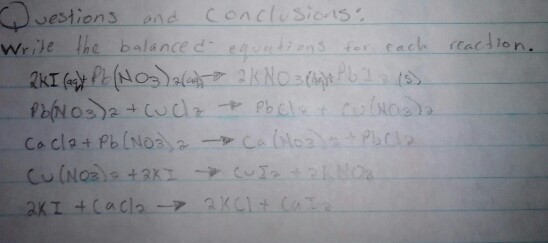 Questions and Conclusions:
Write the balanced equations for each reaction.
2KI(aq)+Pb(NO3)2(aq)→ 2KNO3(aq)+PbI2(s)
Pb(NO3)2 + CuCl2 → PbCl2 + Cu(NO3)2
CaCl2 + Pb(NO3)2 → Ca(NO3)2 + PbCl2
Cu(NO3)2 + 2KI → CuI2 + 2KNO3
2KI + CaCl2 → 2KCl + CaI2